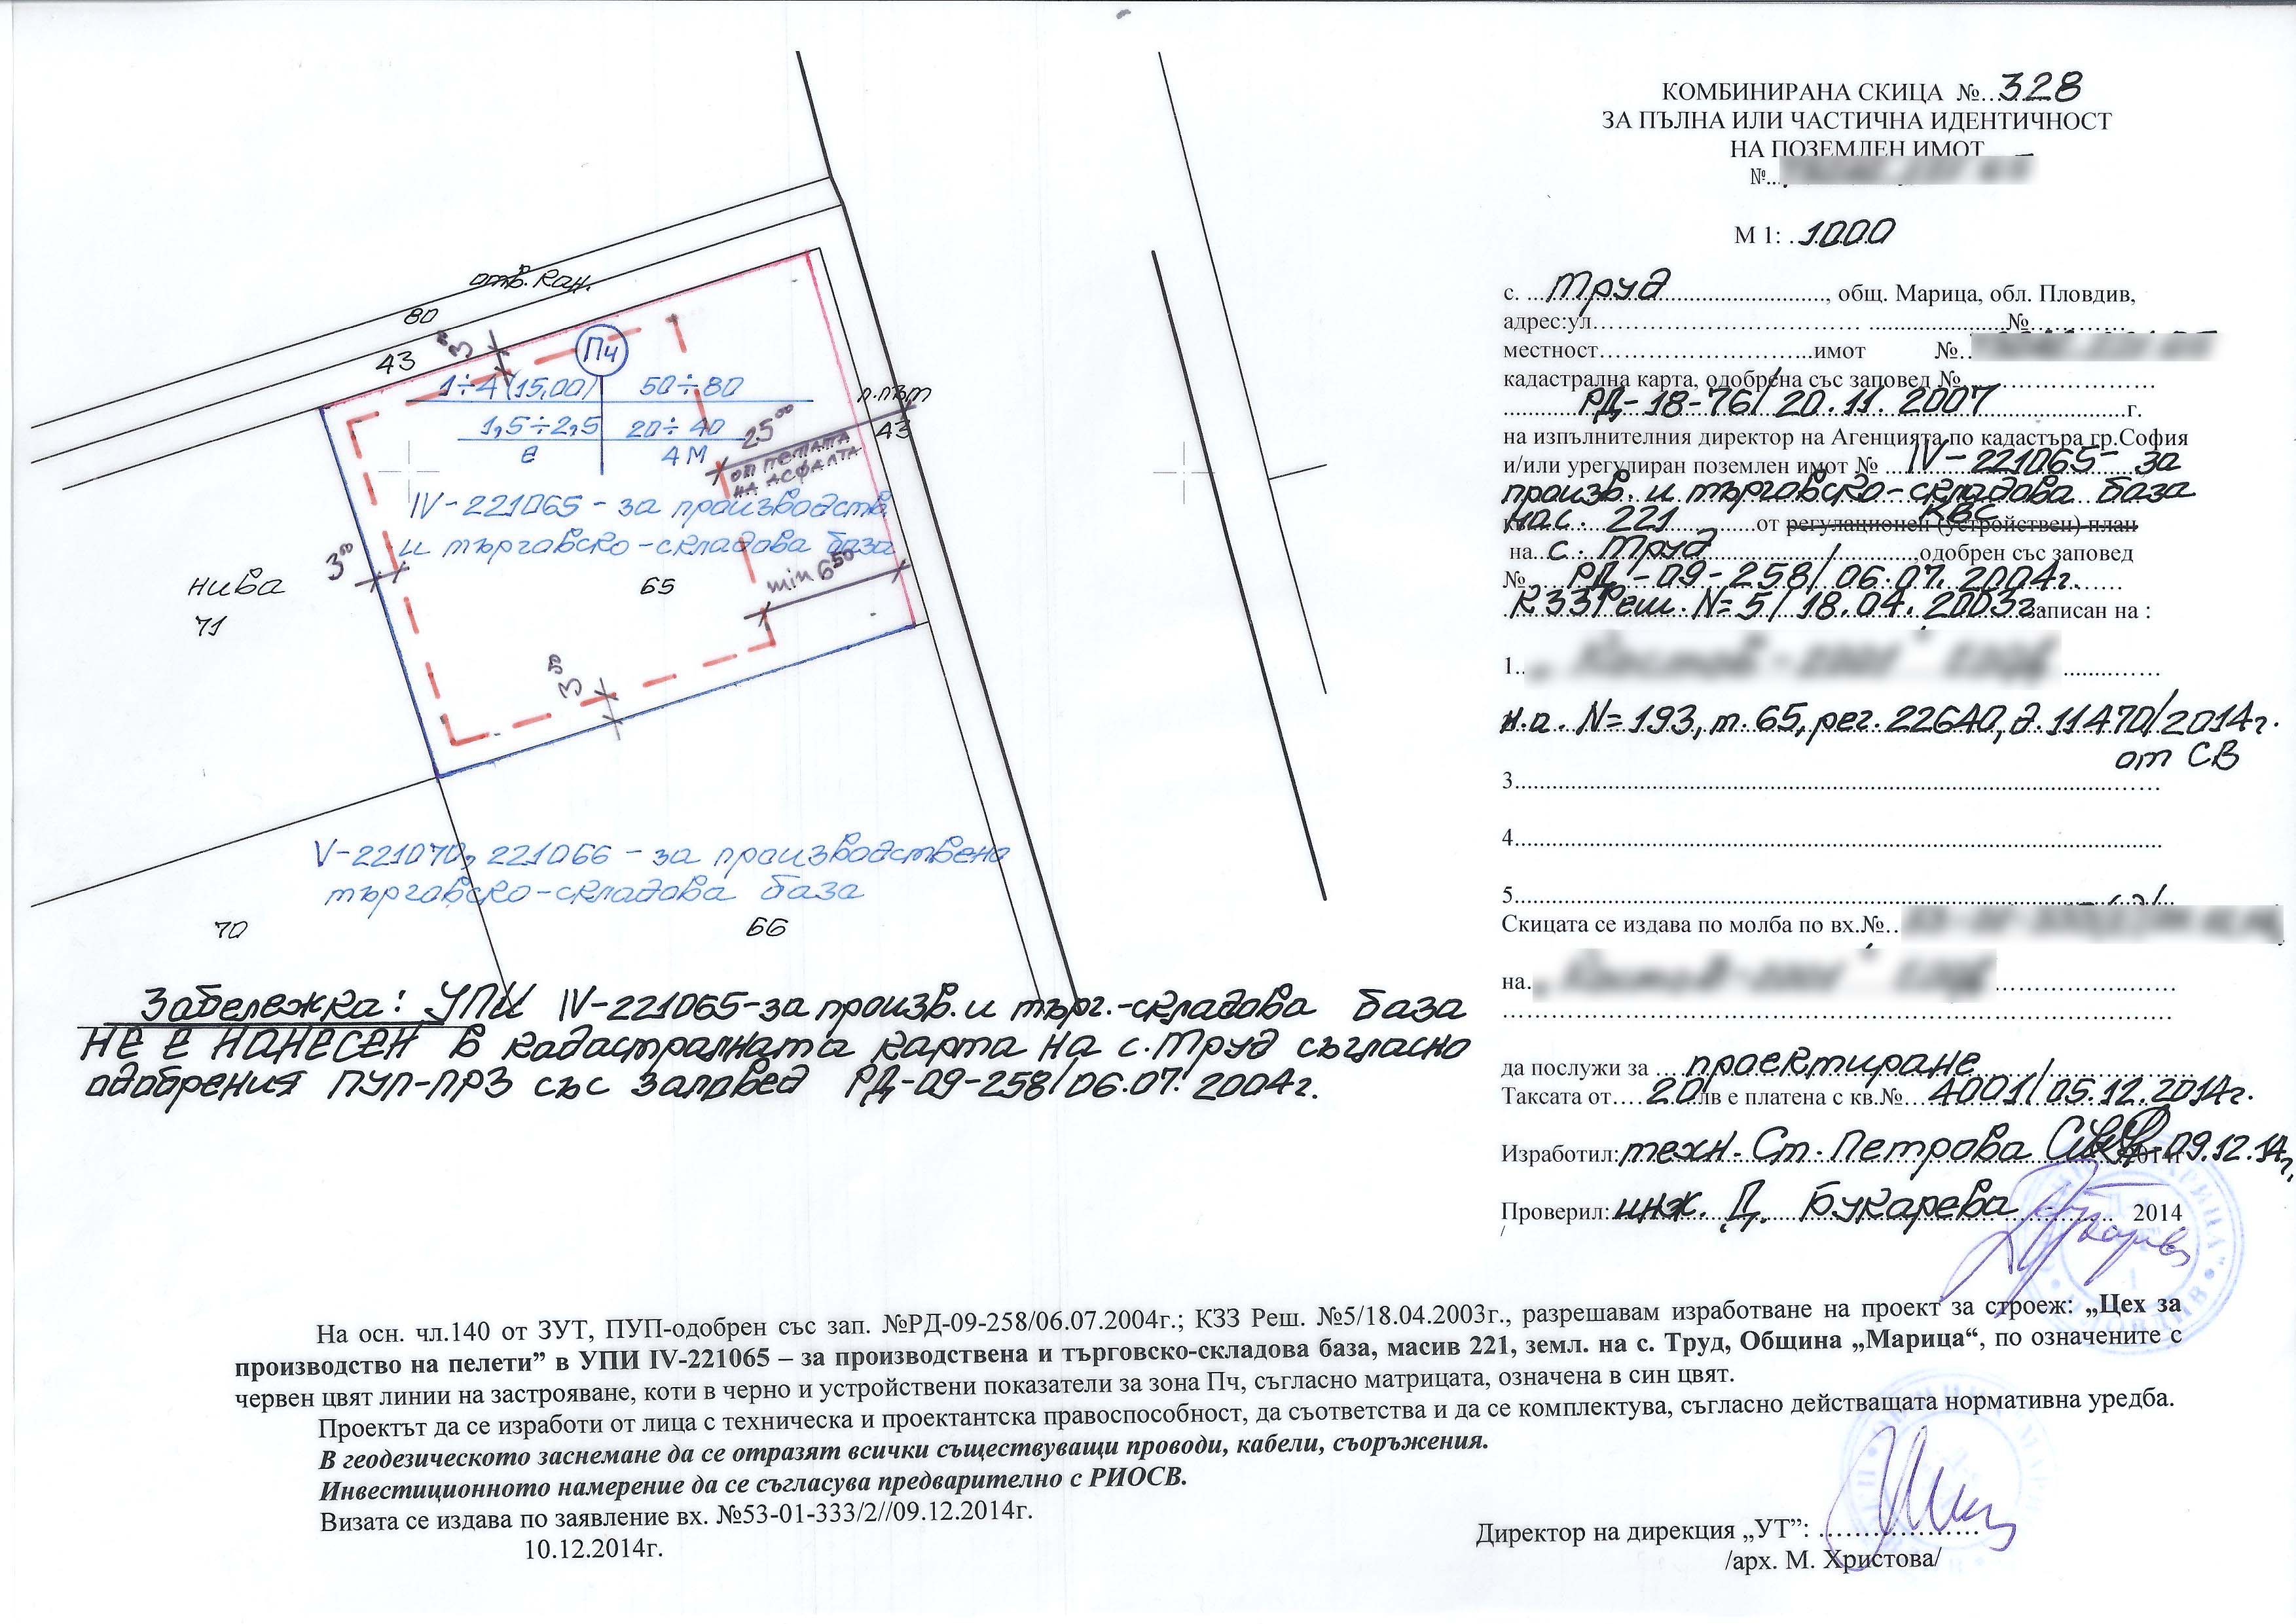 отв. кан.
80
43
3⁰⁰
Пч
1÷4 (15,00) 50÷80
1,5÷2,5 20÷40
е 4М
п.път
43
25⁰⁰
от петата
на асфалта
IV-221065 - за производств.
и търговско-складова база
3⁰⁰
min 6⁵⁰
65
нива
71
3⁰⁰
V-221070, 221066 - за производствено
търговско-складова база
70
66
Забележка: УПИ IV-221065-за произв. и търг.-складова база
НЕ Е НАНЕСЕН в кадастралната карта на с. Труд съгласно
одобрения ПУП-ПРЗ със заповед РД-09-258/06.07.2004г.
КОМБИНИРАНА СКИЦА №...328
ЗА ПЪЛНА ИЛИ ЧАСТИЧНА ИДЕНТИЧНОСТ
НА ПОЗЕМЛЕН ИМОТ
№...
М 1: ..1000
с. ...Труд..., общ. Марица, обл. Пловдив,
адрес:ул.............................. №............
местност..............................имот №..
кадастрална карта, одобрена със заповед №..............
..........РД-18-76/20.11.2007..........г.
на изпълнителния директор на Агенцията по кадастъра гр.София
и/или урегулиран поземлен имот № ...IV-221065- за
произв. и търговско-складова база
мас. 221..........от регулационен (устройствен) план КВС
на..с. Труд..........,одобрен със заповед
№....РД-09-258/06.07.2004г.......
КЗЗ Реш. №5/18.04.2003г. записан на :
1..
н.а. №193, т.65, рег.22640, д.11470/2014г.
от СВ
3..............................
4..............................
5..............................
Скицата се издава по молба по вх.№..
на.
да послужи за ...проектиране
Таксата от....20 лв е платена с кв.№...4001/05.12.2014г.
Изработил: техн. Ст. Петрова 09.12.14г.
Проверил: инж. Д. Букарева ........ 2014
На осн. чл.140 от ЗУТ, ПУП-одобрен със зап. №РД-09-258/06.07.2004г.; КЗЗ Реш. №5/18.04.2003г., разрешавам изработване на проект за строеж: „Цех за
производство на пелети” в УПИ IV-221065 – за производствена и търговско-складова база, масив 221, земл. на с. Труд, Община „Марица“, по означените с
червен цвят линии на застрояване, коти в черно и устройствени показатели за зона Пч, съгласно матрицата, означена в син цвят.
Проектът да се изработи от лица с техническа и проектантска правоспособност, да съответства и да се комплектува, съгласно действащата нормативна уредба.
В геодезическото заснемане да се отразят всички съществуващи проводи, кабели, съоръжения.
Инвестиционното намерение да се съгласува предварително с РИОСВ.
Визата се издава по заявление вх. №53-01-333/2//09.12.2014г.
10.12.2014г.
Директор на дирекция „УТ”: ....................
/арх. М. Христова/